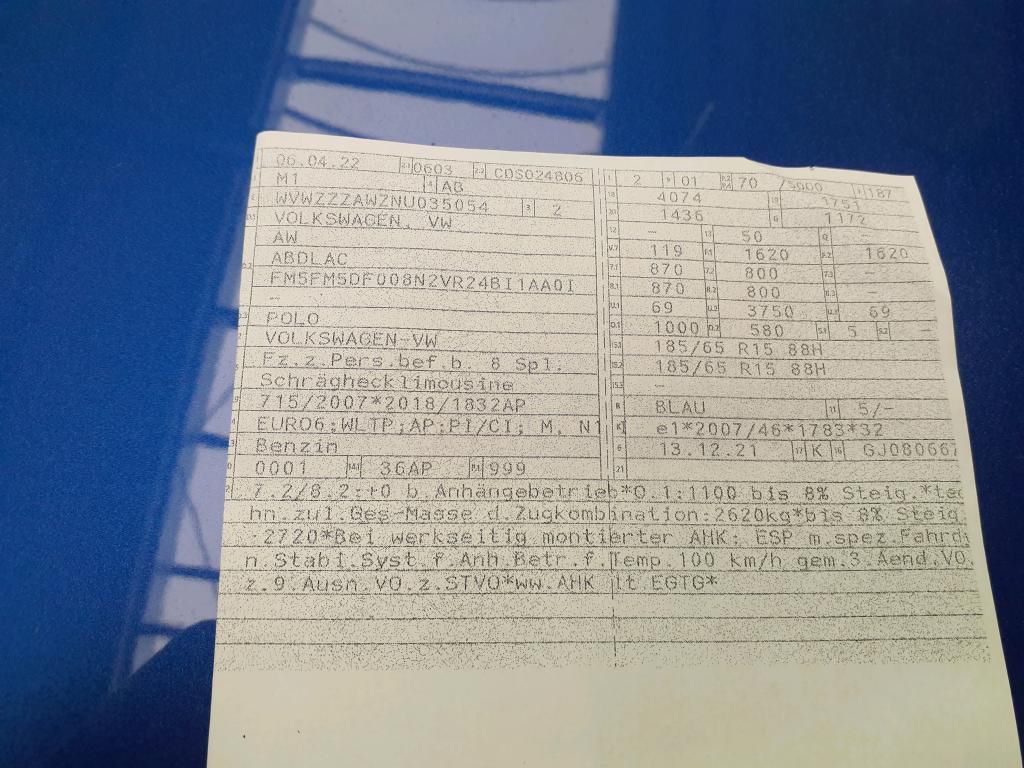 06.04.22 0603 CDS024806
M1 AB
WVWZZZAWZNU035054 3 2
VOLKSWAGEN, VW
AW
ABDLAC
FM5FM5DF008N2VR24BI1AA0I
—
POLO
VOLKSWAGEN-VW
Fz.z.Pers.bef.b. 8 Spl.
Schräghecklimousine
715/2007*2018/1832AP
EURO6;WLTP;AP;PI/CI; M, N1
Benzin
0001 36AP 999
2 01 70 /5000 187
4074 1751
1436 1172
— 50 —
119 1620 1620
870 800 —
870 800 —
69 3750 69
1000 580 5 —
185/65 R15 88H
185/65 R15 88H
—
BLAU 5/-
e1*2007/46*1783*32
13.12.21 K GJ080667
21
7.2/8.2:+0 b.Anhängebetrieb*O.1:1100 bis 8% Steig.*tec
hn.zul.Ges-Masse d.Zugkombination:2620kg*bis 8% Steig.
:2720*Bei werkseitig montierter AHK: ESP m.spez.Fahrdy
n.Stabi.Syst.f.Anh.Betr.f.Temp.100 km/h gem.3.Aend.VO.
z.9.Ausn.VO.z.STVO*ww.AHK lt.EGTG*